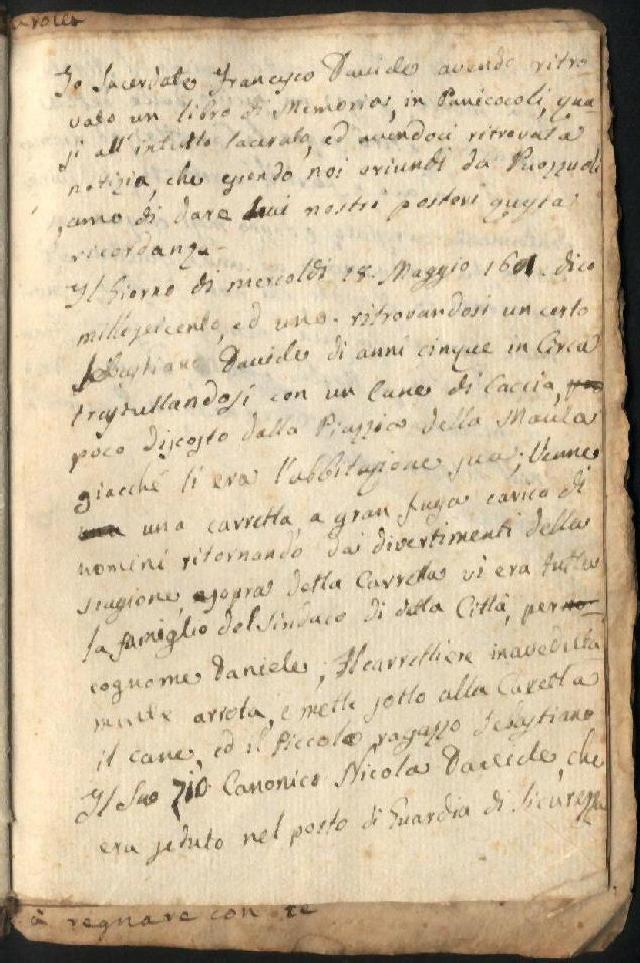 Io Sacerdote Francesco Davide avendo ritro-
vato un libro di Memoria, in Panicocoli, qua-
si all'intutto lacerato, ed avendoci ritrovata
notizia, che essendo noi oriundi da Puozzuoli
amo di dare hai nostri posteri questa
ricordanza
Il Giorno di mercoldì 18. Maggio 1601. dico
milleseicento, ed uno. ritrovandosi un certo
Sebastiano Davide di anni cinque in Circa
trastullandosi con un Cane di Caccia,
poco discosto dalla Piazza della Maula
giacché lì era l'abbitazione sua; Venne
una carretta, a gran fuga carica di
uomini ritornando dai divertimenti della
stagione, e sopra detta Carretta vi era tutta
la famiglia del Sindaco di detta Città, per
cognome Daniele; Il carrettiere inavedúta
mente arrota, e mette sotto alla Caretta
il cane, ed il Piccolo ragazzo Sebastiano
Il Suo Zio Canonico Nicola Daveide, che
era seduto nel posto di Guardia di Sicurezza
à regnare con te